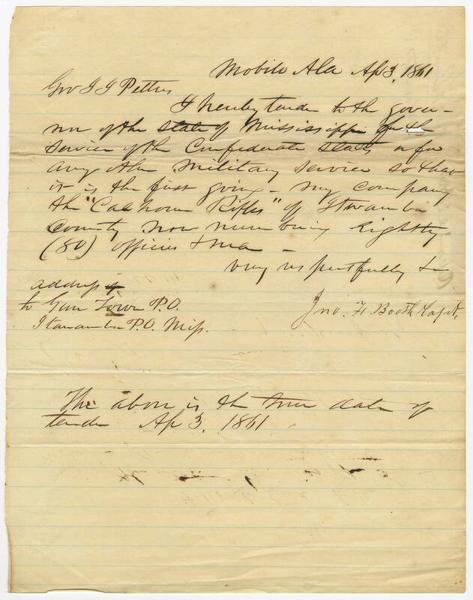 Mobile Ala Ap 3, 1861
Gov J J Pettus
I hereby tender to the gover-
nor of the state of Mississippi for the
service of the Confederate States or for
any other military service so that
it is the first going - my company
the "Calhoun Rifles" of Itawamba
County now numbering Eighty
(80) officers & men -
very respectfully &c
Jno. F. Booth Capt,
address
to Gun Town P.O.
Itawamba P.O. Miss.
The above is the true date of
tender Ap 3, 1861